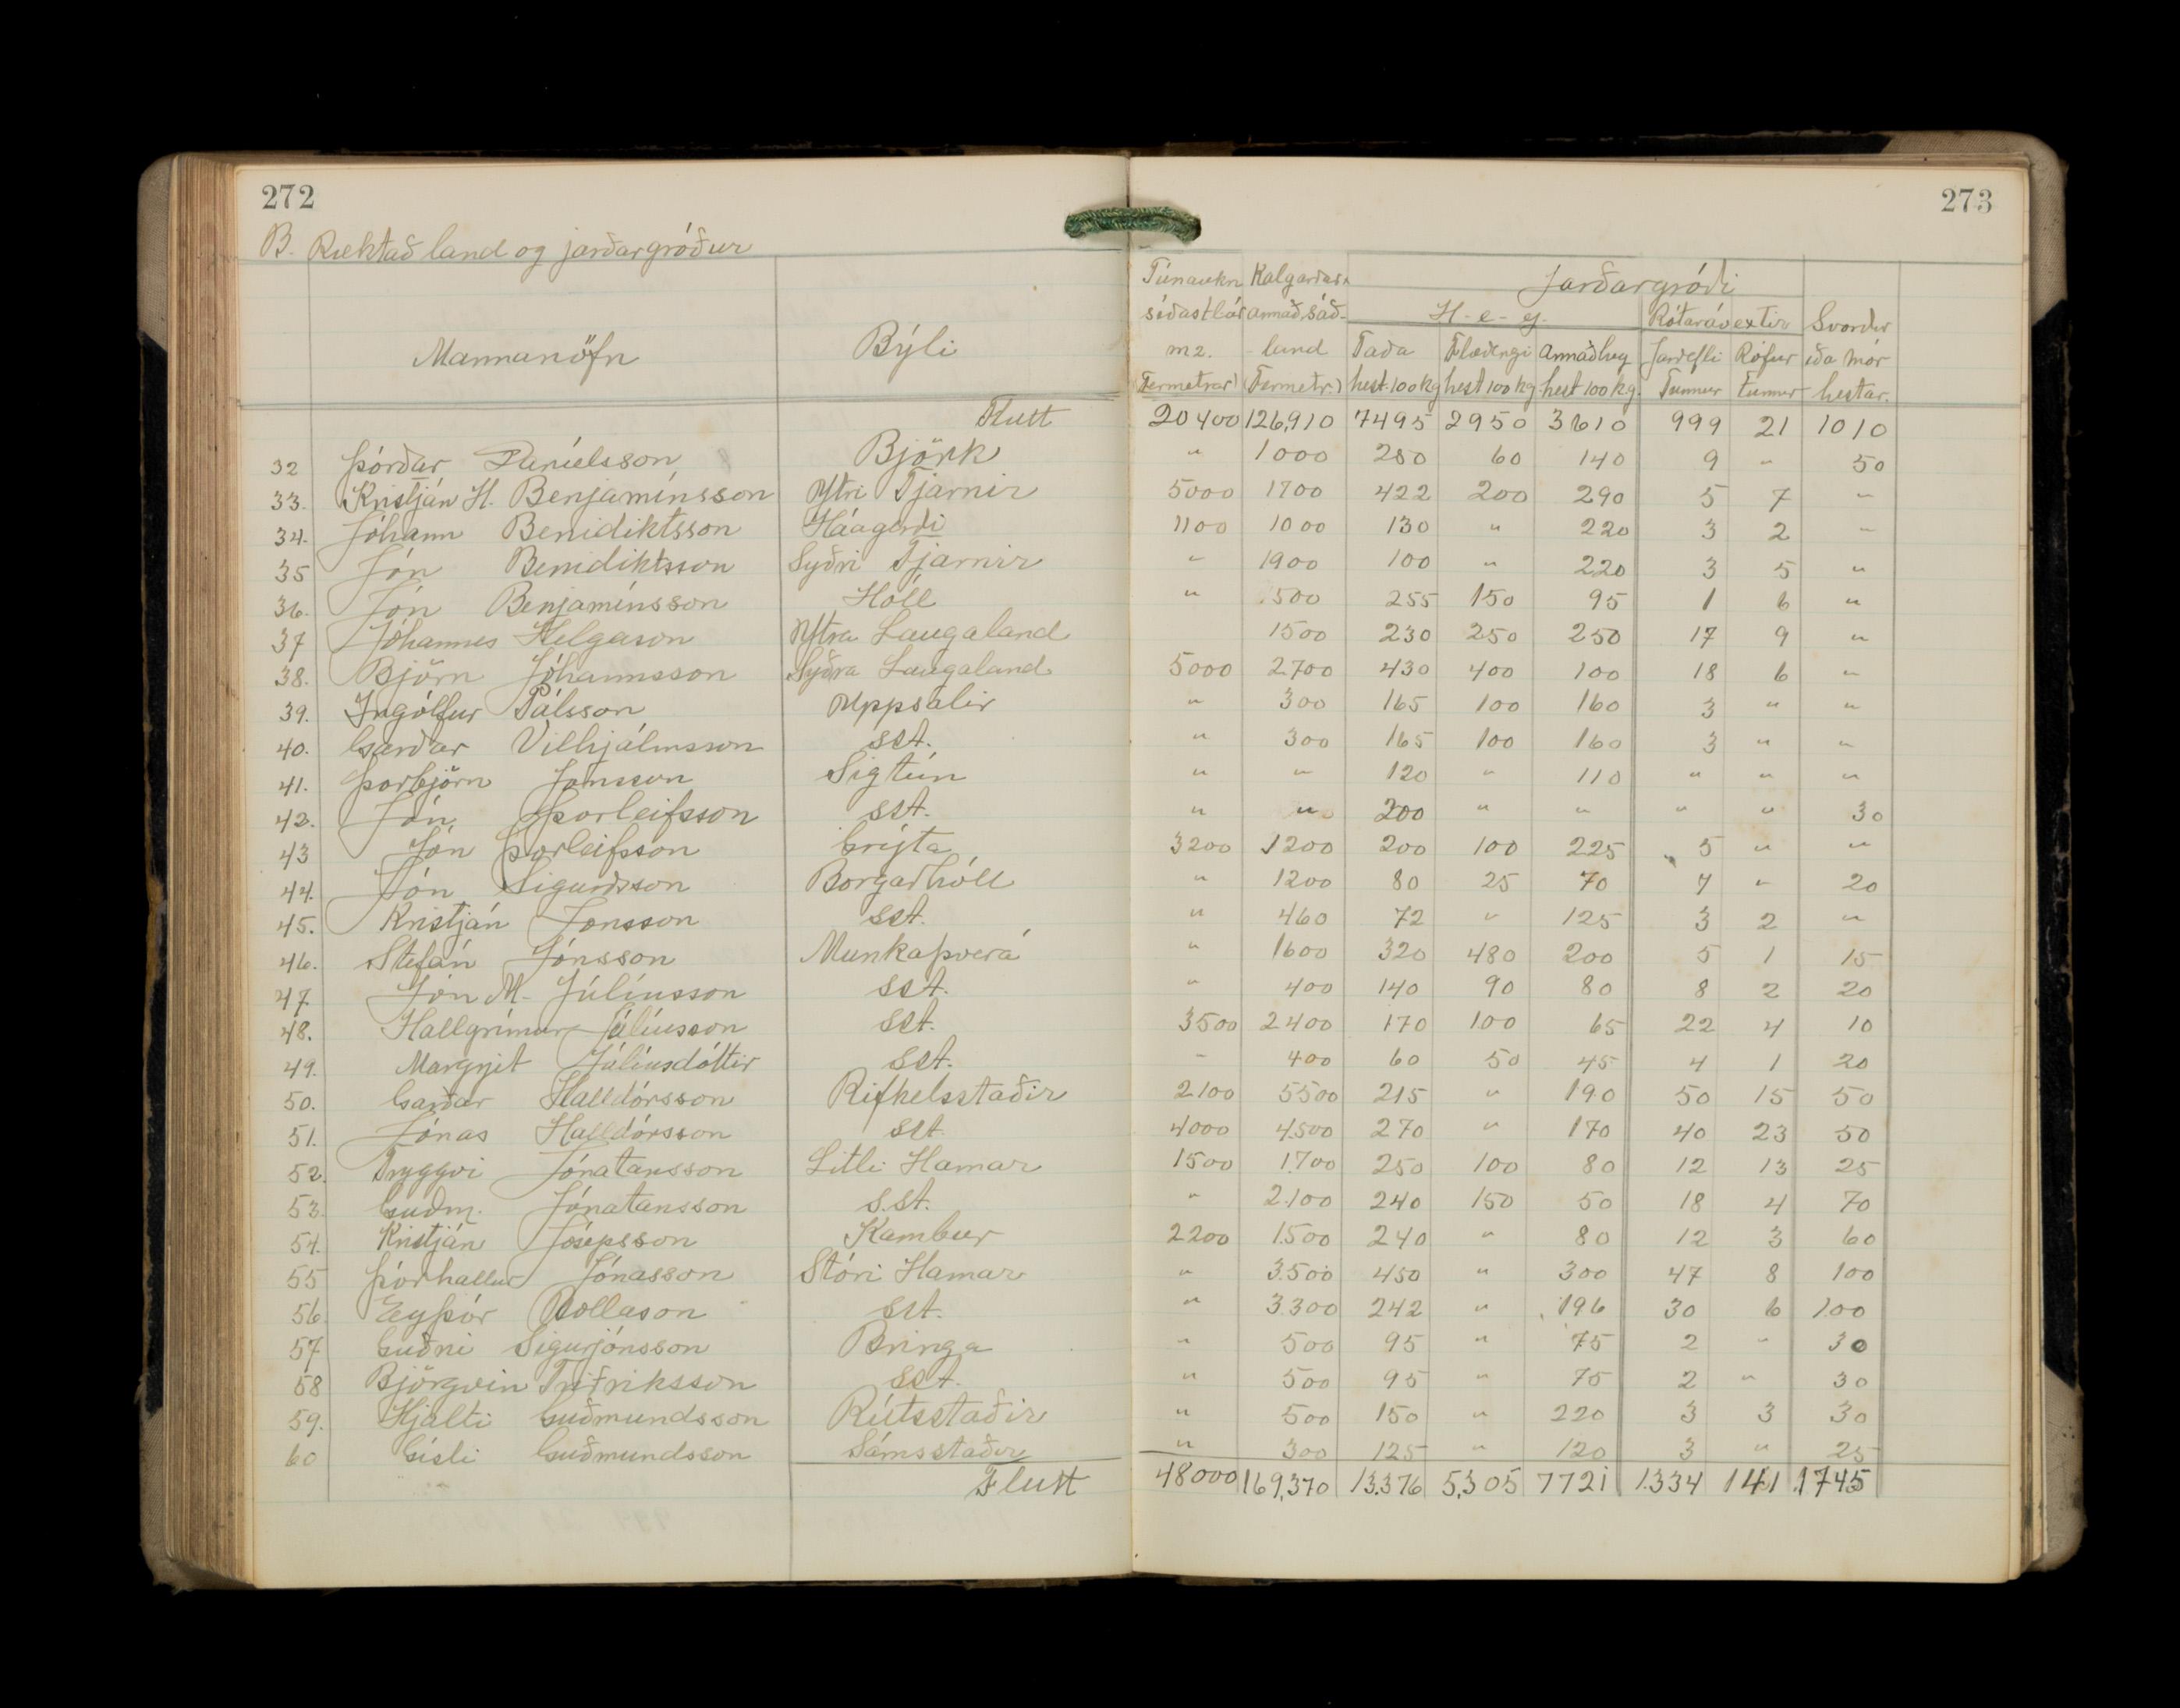 272
273
B. Ræktað land og jarðargróður
Mannanöfn Býli
Túnaukn. síðastl. ár m2. (Fermetrar)
Kálgarðar annað sáðland (Fermetr.)
Jarðargróði
H-e-y-
Taða hest. 100 kg
Flæðengi hest 100 kg
Annað hey hest 100 kg.
Rótarávextir
Jarðepli Tunnur
Rófur Tunnur
Svörður eða mór hestar.
Flutt 20400 126,910 7495 2950 3610 999 21 1010
32 Þórðar Daníelsson Björk " 1000 280 60 140 9 " 50
33. Kristján H. Benjamínsson Ytri Tjarnir 5000 1700 422 200 290 5 7 "
34. Jóhann Benidiktsson Háagerði 1100 1000 130 " 220 3 2 "
35 Jón Benidiktsson Syðri Tjarnir " 1900 100 " 220 3 5 "
36. Jón Benjamínsson Hóll " 500 255 150 95 1 6 "
37 Jóhannes Helgason Ytra Laugaland 1500 230 250 250 17 9 "
38. Björn Jóhannsson Syðra Laugaland 5000 2700 430 400 100 18 6 "
39. Ingólfur Pálsson Uppsalir " 300 165 100 160 3 " "
40. Garðar Vilhjálmsson sst. " 300 165 100 160 3 " "
41. Þorbjörn Jónsson Sigtún " " 120 " 110 " " "
42. Jón Þorleifsson sst. " " 200 " " " " 30
43 Jón Þorleifsson Grýta 3200 1200 200 100 225 5 " "
44. Jón Sigurðsson Borgarhóll " 1200 80 25 70 7 " 20
45. Kristján Jónsson sst. " 460 72 " 125 3 2 "
46. Stefán Jónsson Munkaþverá " 1600 320 480 200 5 1 15
47 Jón M. Júlíusson sst. " 400 140 90 80 8 2 20
48. Hallgrímur Júlíusson sst. 3500 2400 170 100 65 22 4 10
49. Margrjet Júlíusdóttir sst. " 400 60 50 45 4 1 20
50. Garðar Halldórsson Rifkelsstaðir 2100 5500 215 " 190 50 15 50
51. Jónas Halldórsson sst 4000 4.500 270 " 170 40 23 50
52. Tryggvi Jónatansson Litli Hamar 1500 1.700 250 100 80 12 13 25
53 Guðm. Jónatansson s.st. " 2.100 240 150 50 18 4 70
54. Kristján Jósepsson Kambur 2200 1.500 240 " 80 12 3 60
55 Þórhallur Jónasson Stóri Hamar " 3.500 450 " 300 47 8 100
56 Eyþór Bollason sst. " 3.300 242 " 196 30 6 100
57 Guðni Sigurjónsson Bringa " 500 95 " 75 2 " 30
58 Björgvin Friðriksson sst. " 500 95 " 75 2 " 30
59. Hjalti Guðmundsson Rútsstaðir " 500 150 " 220 3 3 30
60 Gísli Guðmundsson Sámsstaðir " 300 125 " 120 3 " 25
Flutt 48000 169,370 13.376 5,305 7721 1.334 141 1745